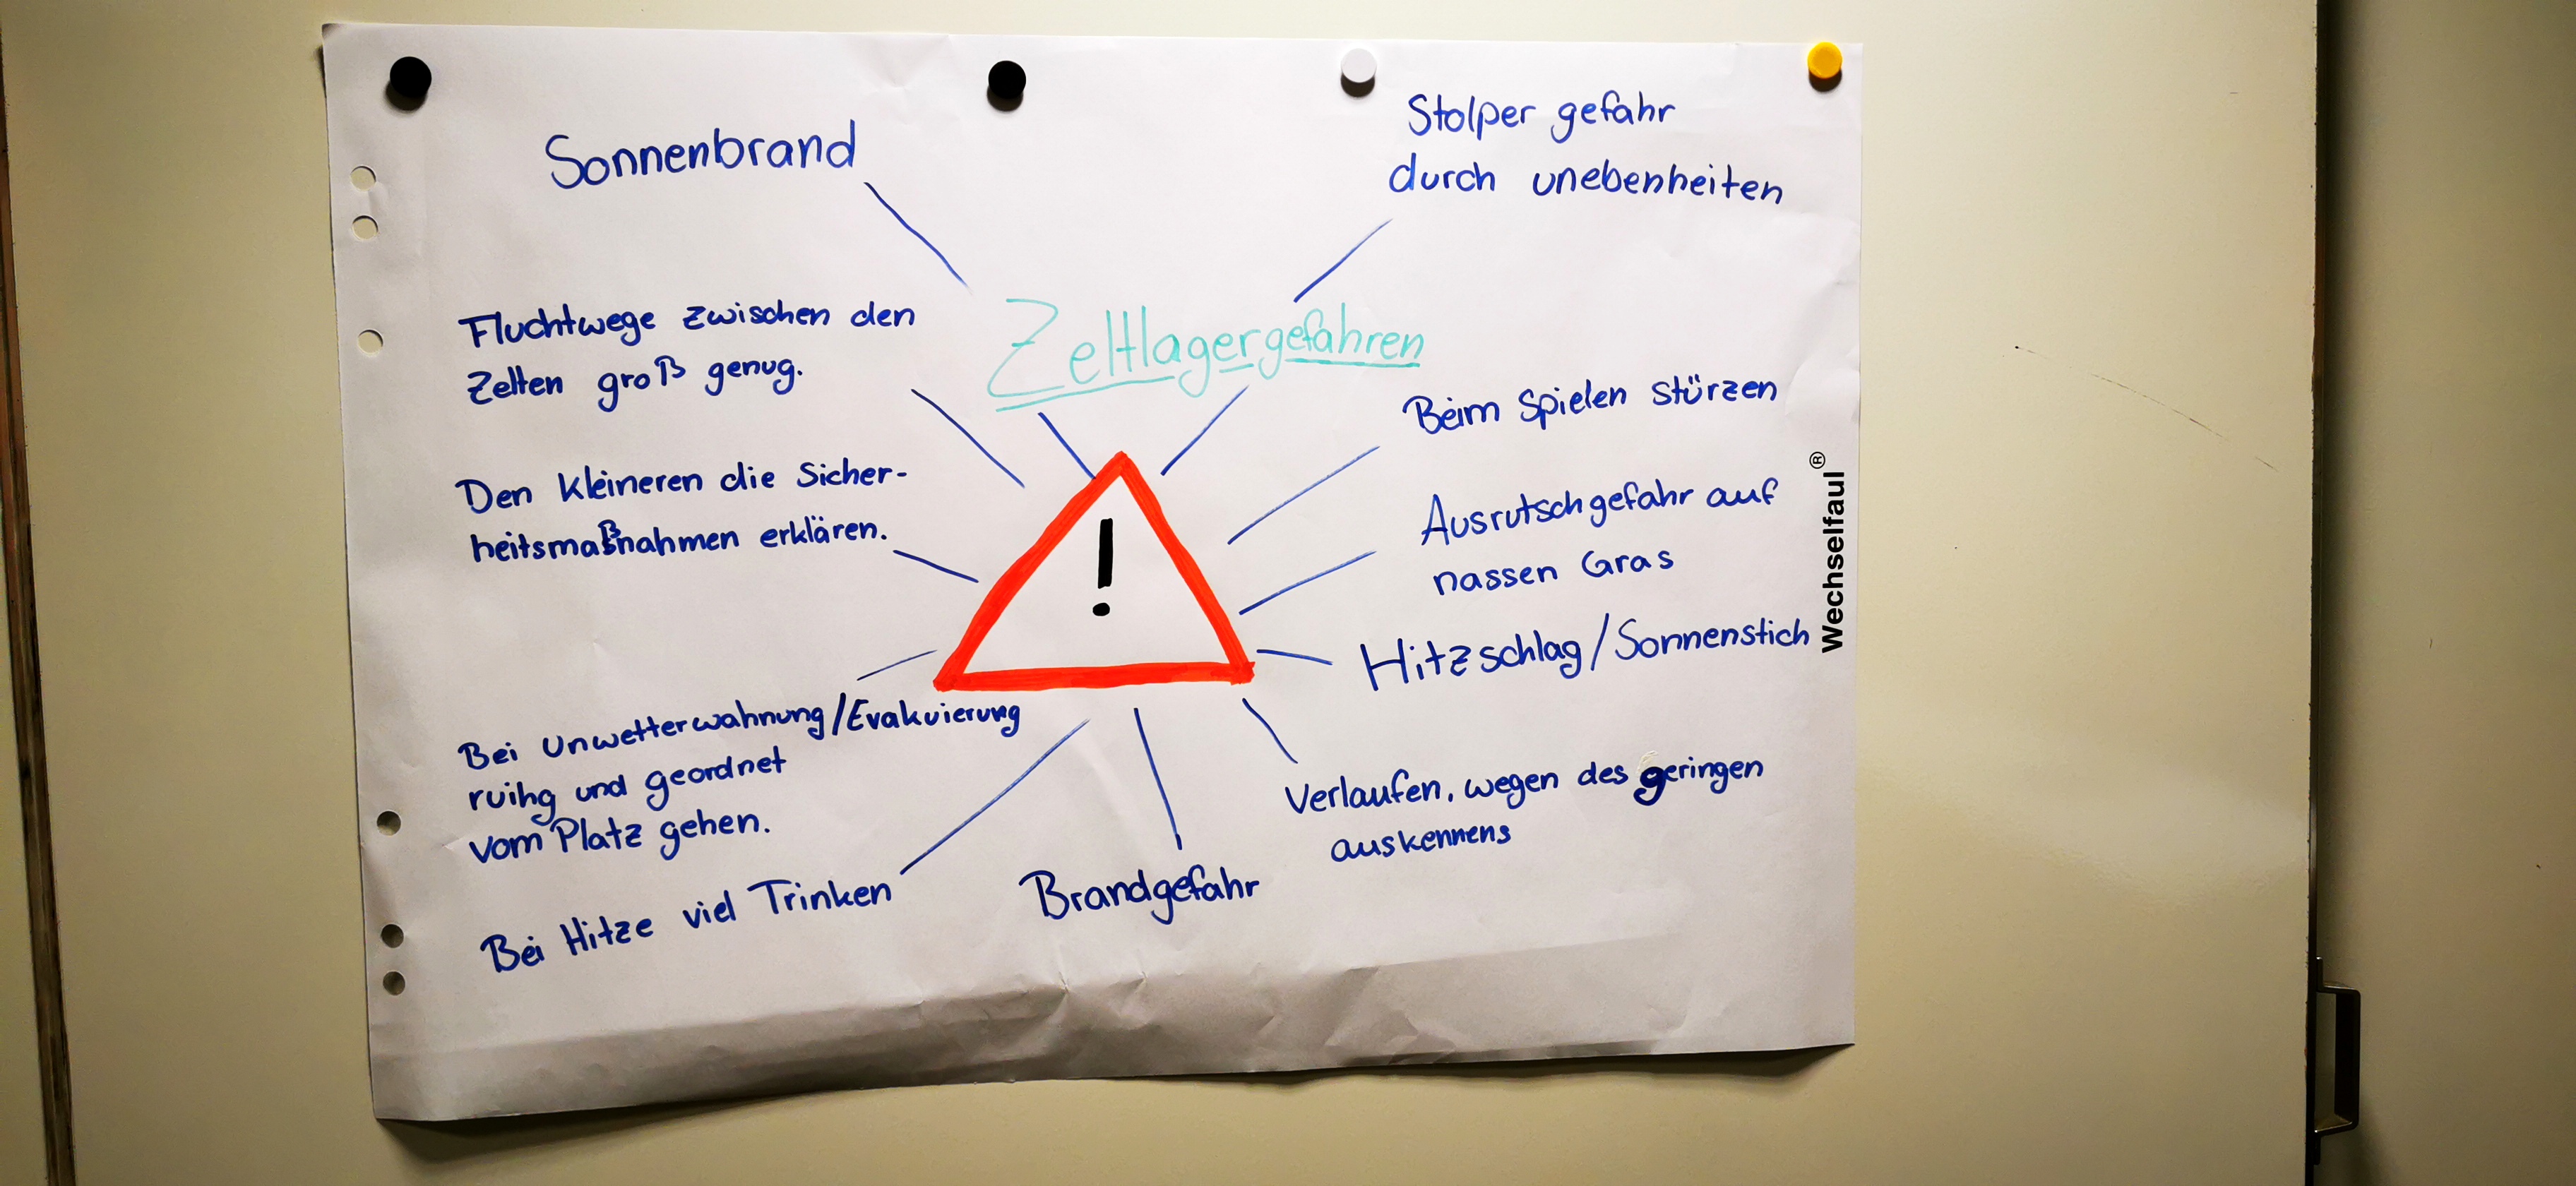 Sonnenbrand
Stolper gefahr
durch unebenheiten
Zeltlagergefahren
Fluchtwege zwischen den
Zelten groß genug.
Beim Spielen stürzen
Den kleineren die Sicher-
heitsmaßnahmen erklären.
!
Ausrutschgefahr auf
nassen Gras
Hitzschlag/Sonnenstich
Wechselfaul®
Bei Unwetterwahnung/Evakuierung
ruihg und geordnet
vom Platz gehen.
Verlaufen, wegen des geringen
auskennens
Bei Hitze viel Trinken
Brandgefahr